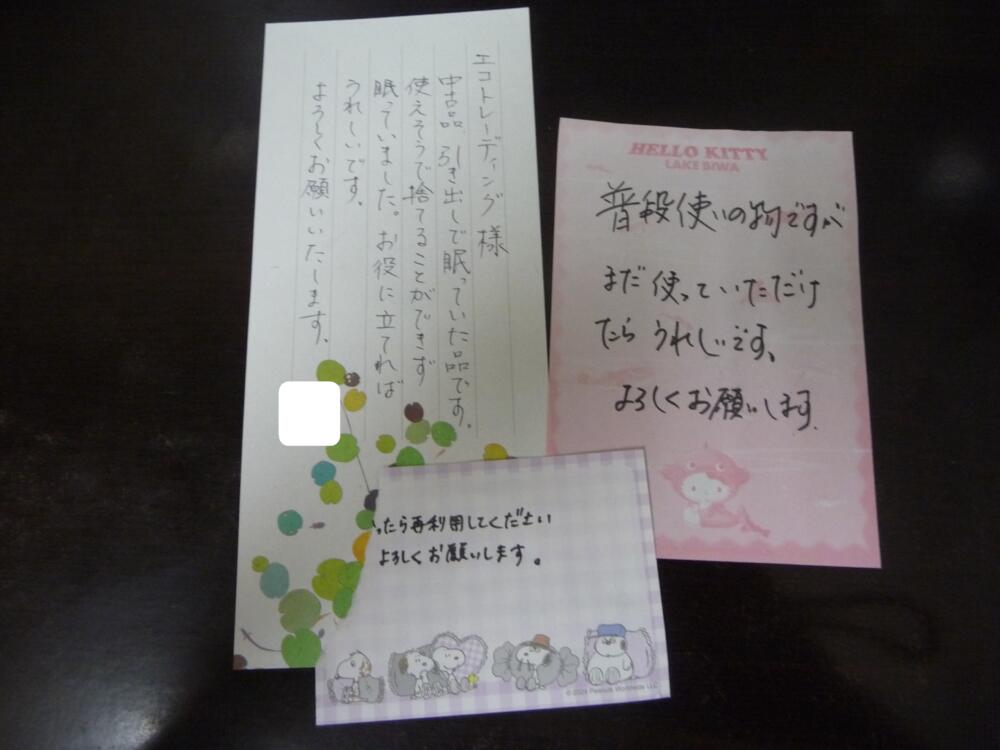 エコトレーディング様
中古品、引き出しで眠っていた品です。
使えそうで捨てることができず
眠っていました。お役に立てれば
うれしいです。
よろしくお願いいたします。
HELLO KITTY
LAKE BIWA
普段使いの物ですが
まだ使っていただけ
たらうれしいです。
よろしくお願いします
ったら再利用してください
よろしくお願いします。
©2024 Peanuts Worldwide LLC